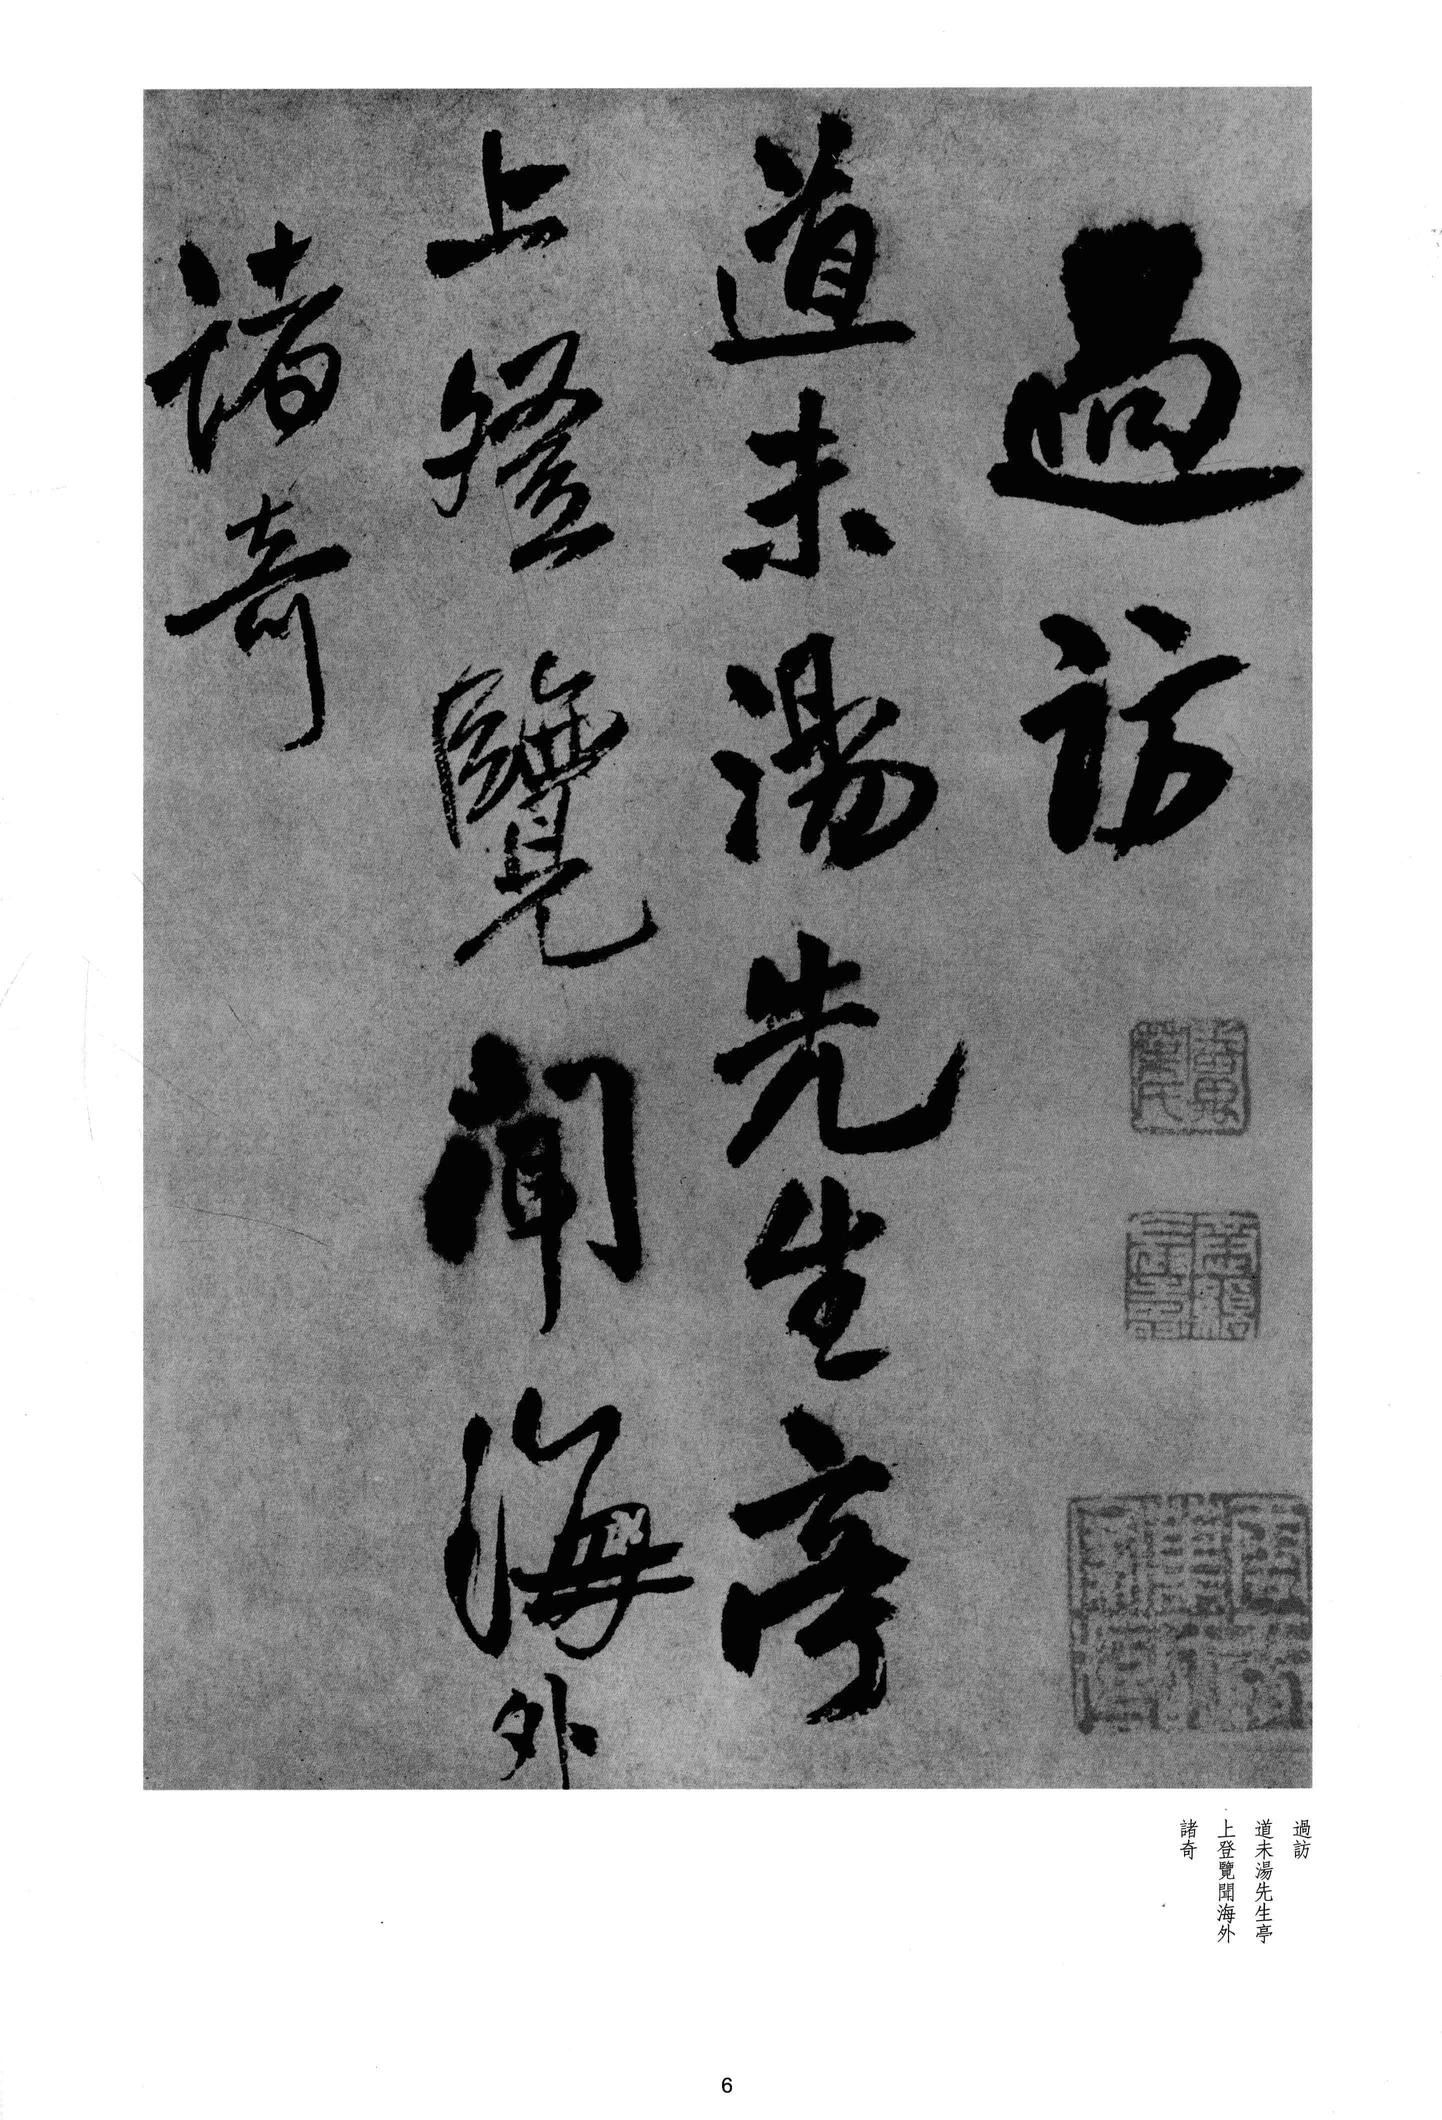 過訪
道未湯先生亭
上登覽聞海外
諸奇
過訪
道未湯先生亭
上登覽聞海外
諸奇
6